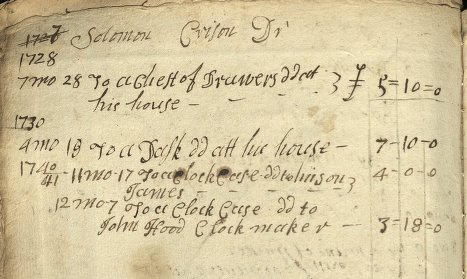 1727 Solomon Crison Dr
1728
7 mo 28 To a Chest of Drawers dd at £ 5=10=0
his house - - - -
1730
4 mo 19 To a Dask dd att his house - 7-10-0
1740
41-11 mo-17 To a Clock Case dd to hinson 4-0-0
James - - - -
12 mo-7 To a Clock Case dd to
John Hood Clock maker - 3=18=0